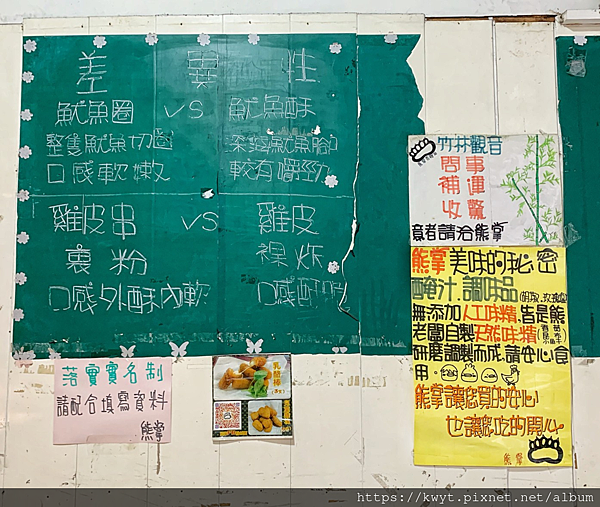 差異性
魷魚圈 VS 魷魚酥
整隻魷魚切圈
口感軟嫩
深海魷魚腳
較有嚼勁
雞皮串 VS 雞皮
裹粉
裸炸
口感外酥內軟
口感酥
落實實名制
請配合填寫資料
熊掌
乳酪棒
竹林觀音
問事
補運
收驚
意者請洽熊掌
熊掌美味的秘密
醃汁.調味品
無添加人工味精,皆是熊
老闆自製天然味精
研磨調製而成,請安心食
用.
熊掌讓您買的安心
也讓您吃的開心
熊掌
https://kwyt.pixnet.net/album